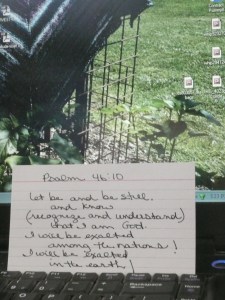 Psalm 46:10
Let be and be still,
and know
(recognize and understand)
that I am God.
I will be exalted
among the nations!
I will be exalted
in the earth!